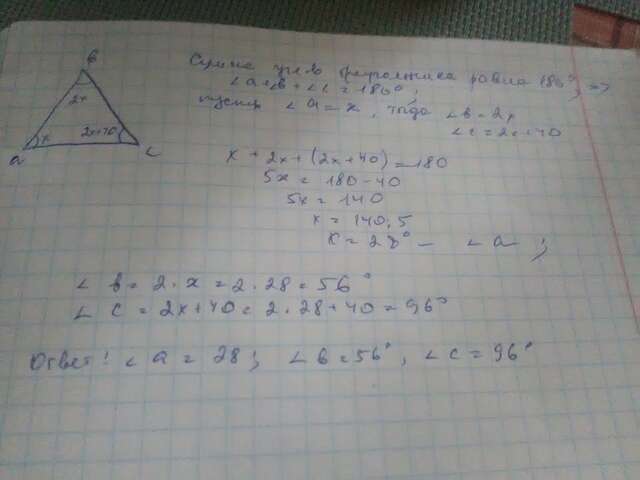 в
2x
x
2x+40
a
c
Сумма углов треугольника равна 180°, =>
∠a+∠в+∠c=180°,
пусть ∠a=x, тогда ∠в=2x
∠c=2x+40
x+2x+(2x+40)=180
5x=180-40
5x=140
x=140:5
x=28° — ∠a;
∠в=2·x=2·28=56°
∠c=2x+40=2·28+40=96°
Ответ: ∠a=28; ∠в=56°, ∠c=96°